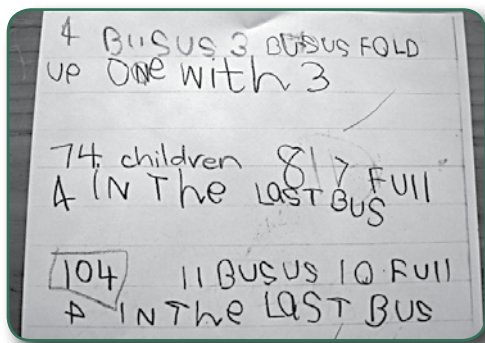 4 BUSUS 3 BUSUS FOLD
UP ONe with 3
74 children 8 7 FUll
4 IN The LAST BUS
104 11 BUSUS 10 FUll
4 IN The LAST BUS